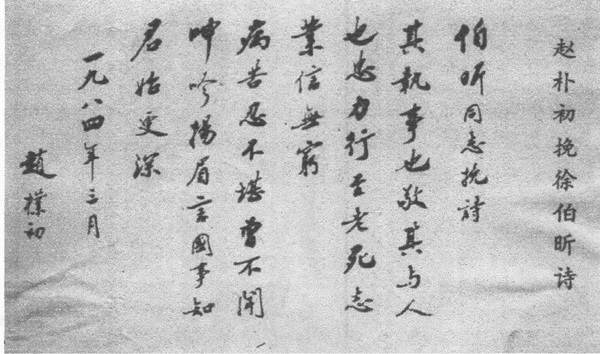 赵朴初挽徐伯昕诗
伯昕同志挽詩
其執事也敬其与人
也忠力行至老死志
業信無窮
病苦忍不堪曾不闻
呻吟揚眉言國事知
君始更深
一九八四年三月
趙樸初